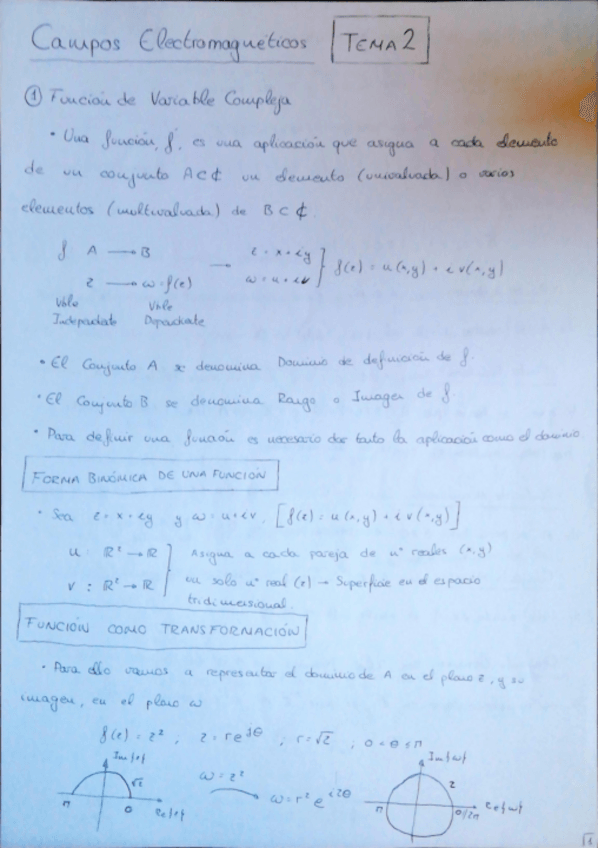 Campos Electromagnéticos TEMA 2
① Función de Variable Compleja
• Una función, f, es una aplicación que asigna a cada elemento
de un conjunto A⊂ℂ un elemento (univaluada) o varios
elementos (multivaluada) de B⊂ℂ.
f A → B → z = x + iy
z → ω = f(z) ω = u + iv } f(z) = u(x,y) + i v(x,y)
Vble Vble
Independiente Dependiente
• El Conjunto A se denomina Dominio de definición de f.
• El Conjunto B se denomina Rango o Imagen de f.
• Para definir una función es necesario dar tanto la aplicación como el dominio
FORMA BINÓMICA DE UNA FUNCIÓN
• Sea z = x + iy y ω = u + iv, [f(z) = u(x,y) + i v(x,y)]
u : ℝ² → ℝ } Asigna a cada pareja de nº reales (x,y)
v : ℝ² → ℝ un solo nº real (z) → Superficie en el espacio
tridimensional.
FUNCIÓN COMO TRANSFORMACIÓN
• Para ello vamos a representar el dominio de A en el plano z, y su
imagen, en el plano ω
f(z) = z² ; z = re^iθ ; r = √2 ; 0 ≤ θ ≤ π
Im{z} Im{ω}
√2 ω = z² 2
π 0 Re{z} ω = r² e^i2θ π 0/2π Re{ω}